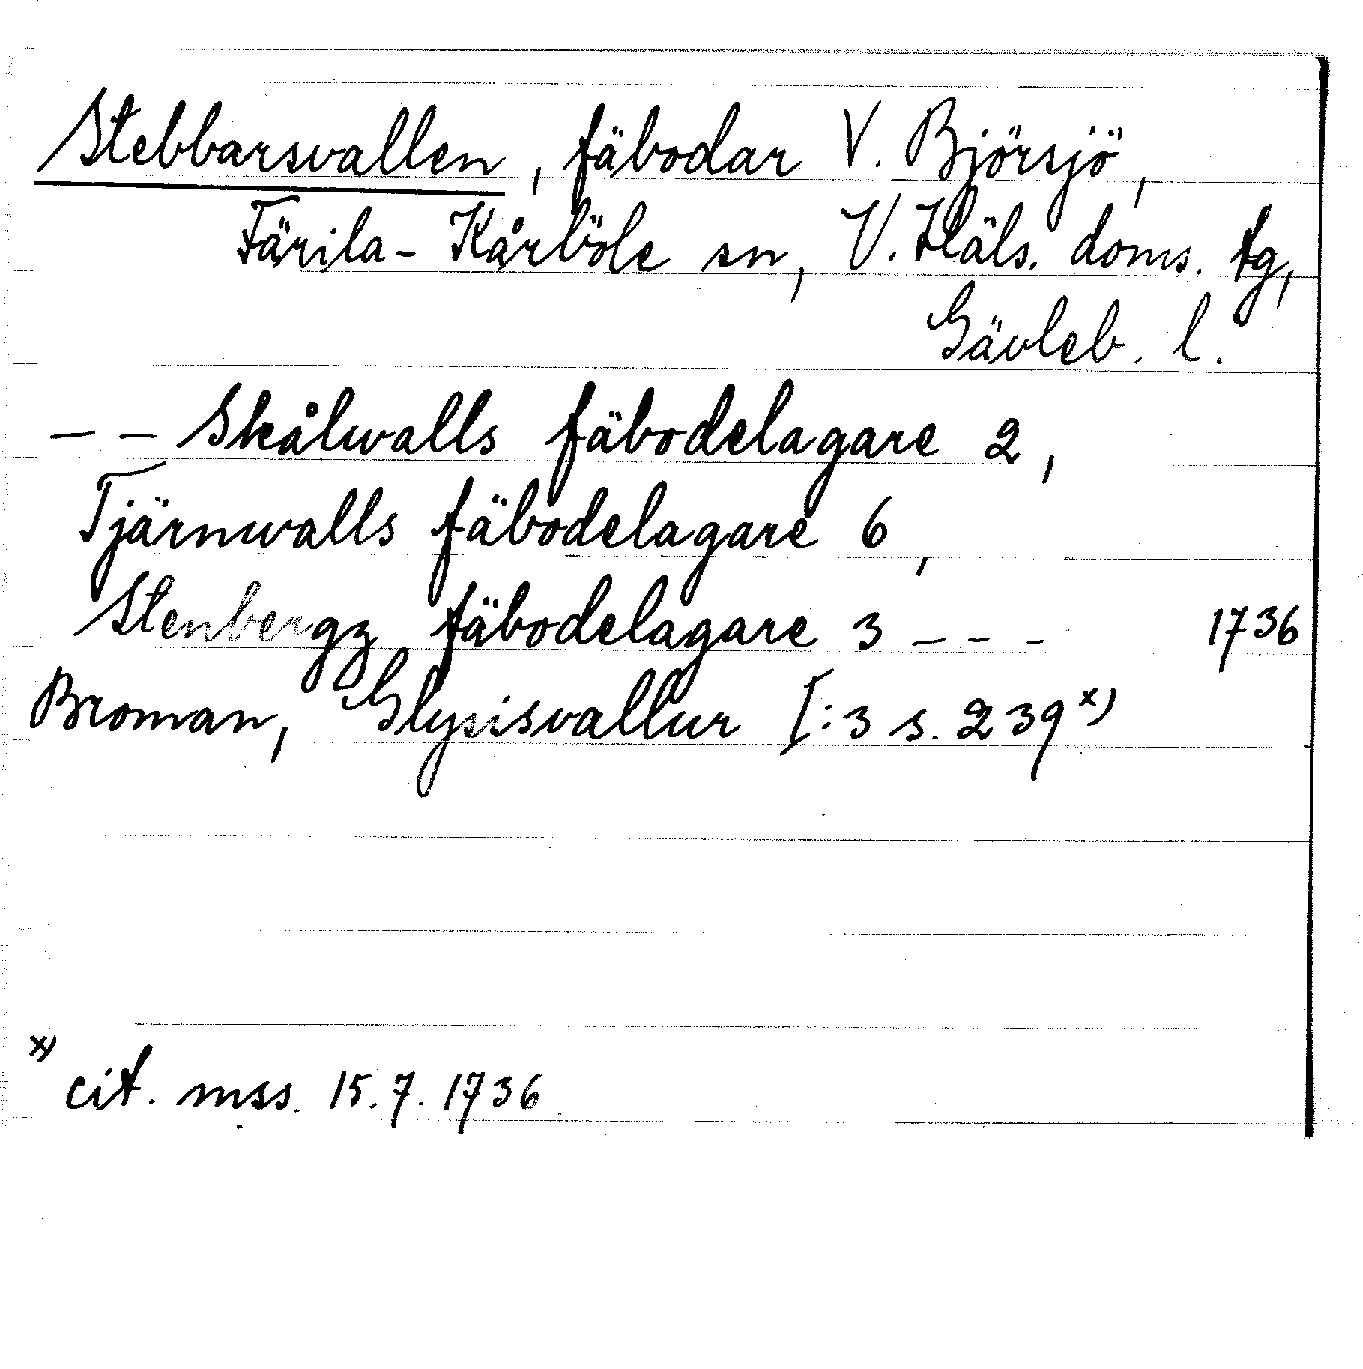 Stebbarsvallen, fäbodar V. Björsjö,
Färila-Kårböle sn, V. Häls. doms. tg,
Gävleb. l.
– – Skålwalls fäbodelagare 2,
Tjärnwalls fäbodelagare 6,
Stenbergz fäbodelagare 3 – – – 1736
Broman, Glysisvallur [:3 s. 239 x)
x) cit. mss. 15.7.1736